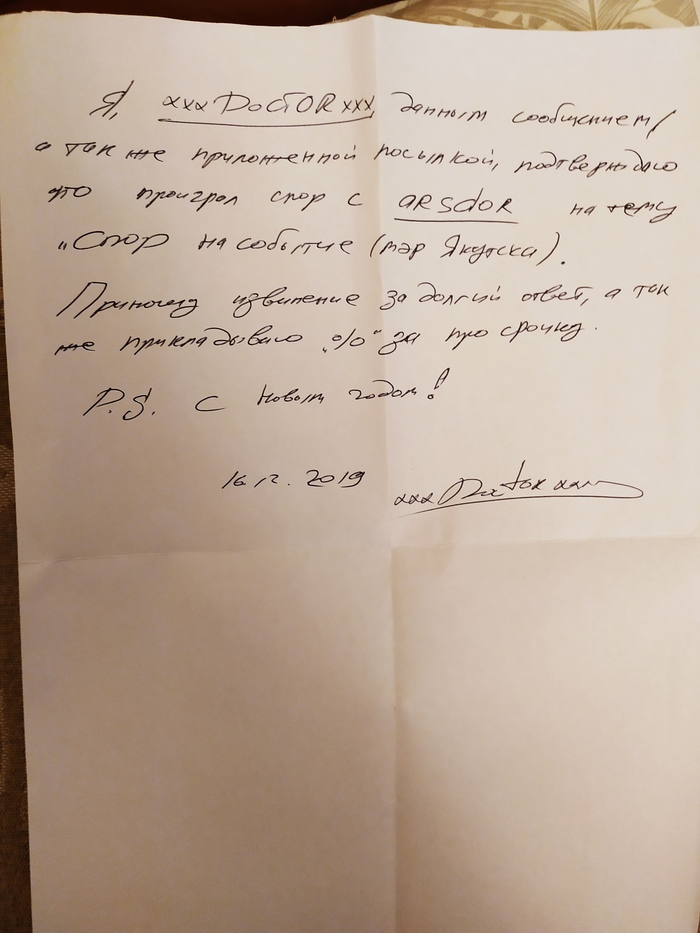 Я, xxxDoctORxxx, данным сообщением/
а так же приложенной посылкой, подтверждаю
что проиграл спор с arsdor на тему
"Спор на событие (мэр Якутска).
Приношу извинение за долгий ответ, а так
же прикладываю "%" за просрочку.
P.S. С Новым годом!
16.12.2019 xxxDoctorxxx